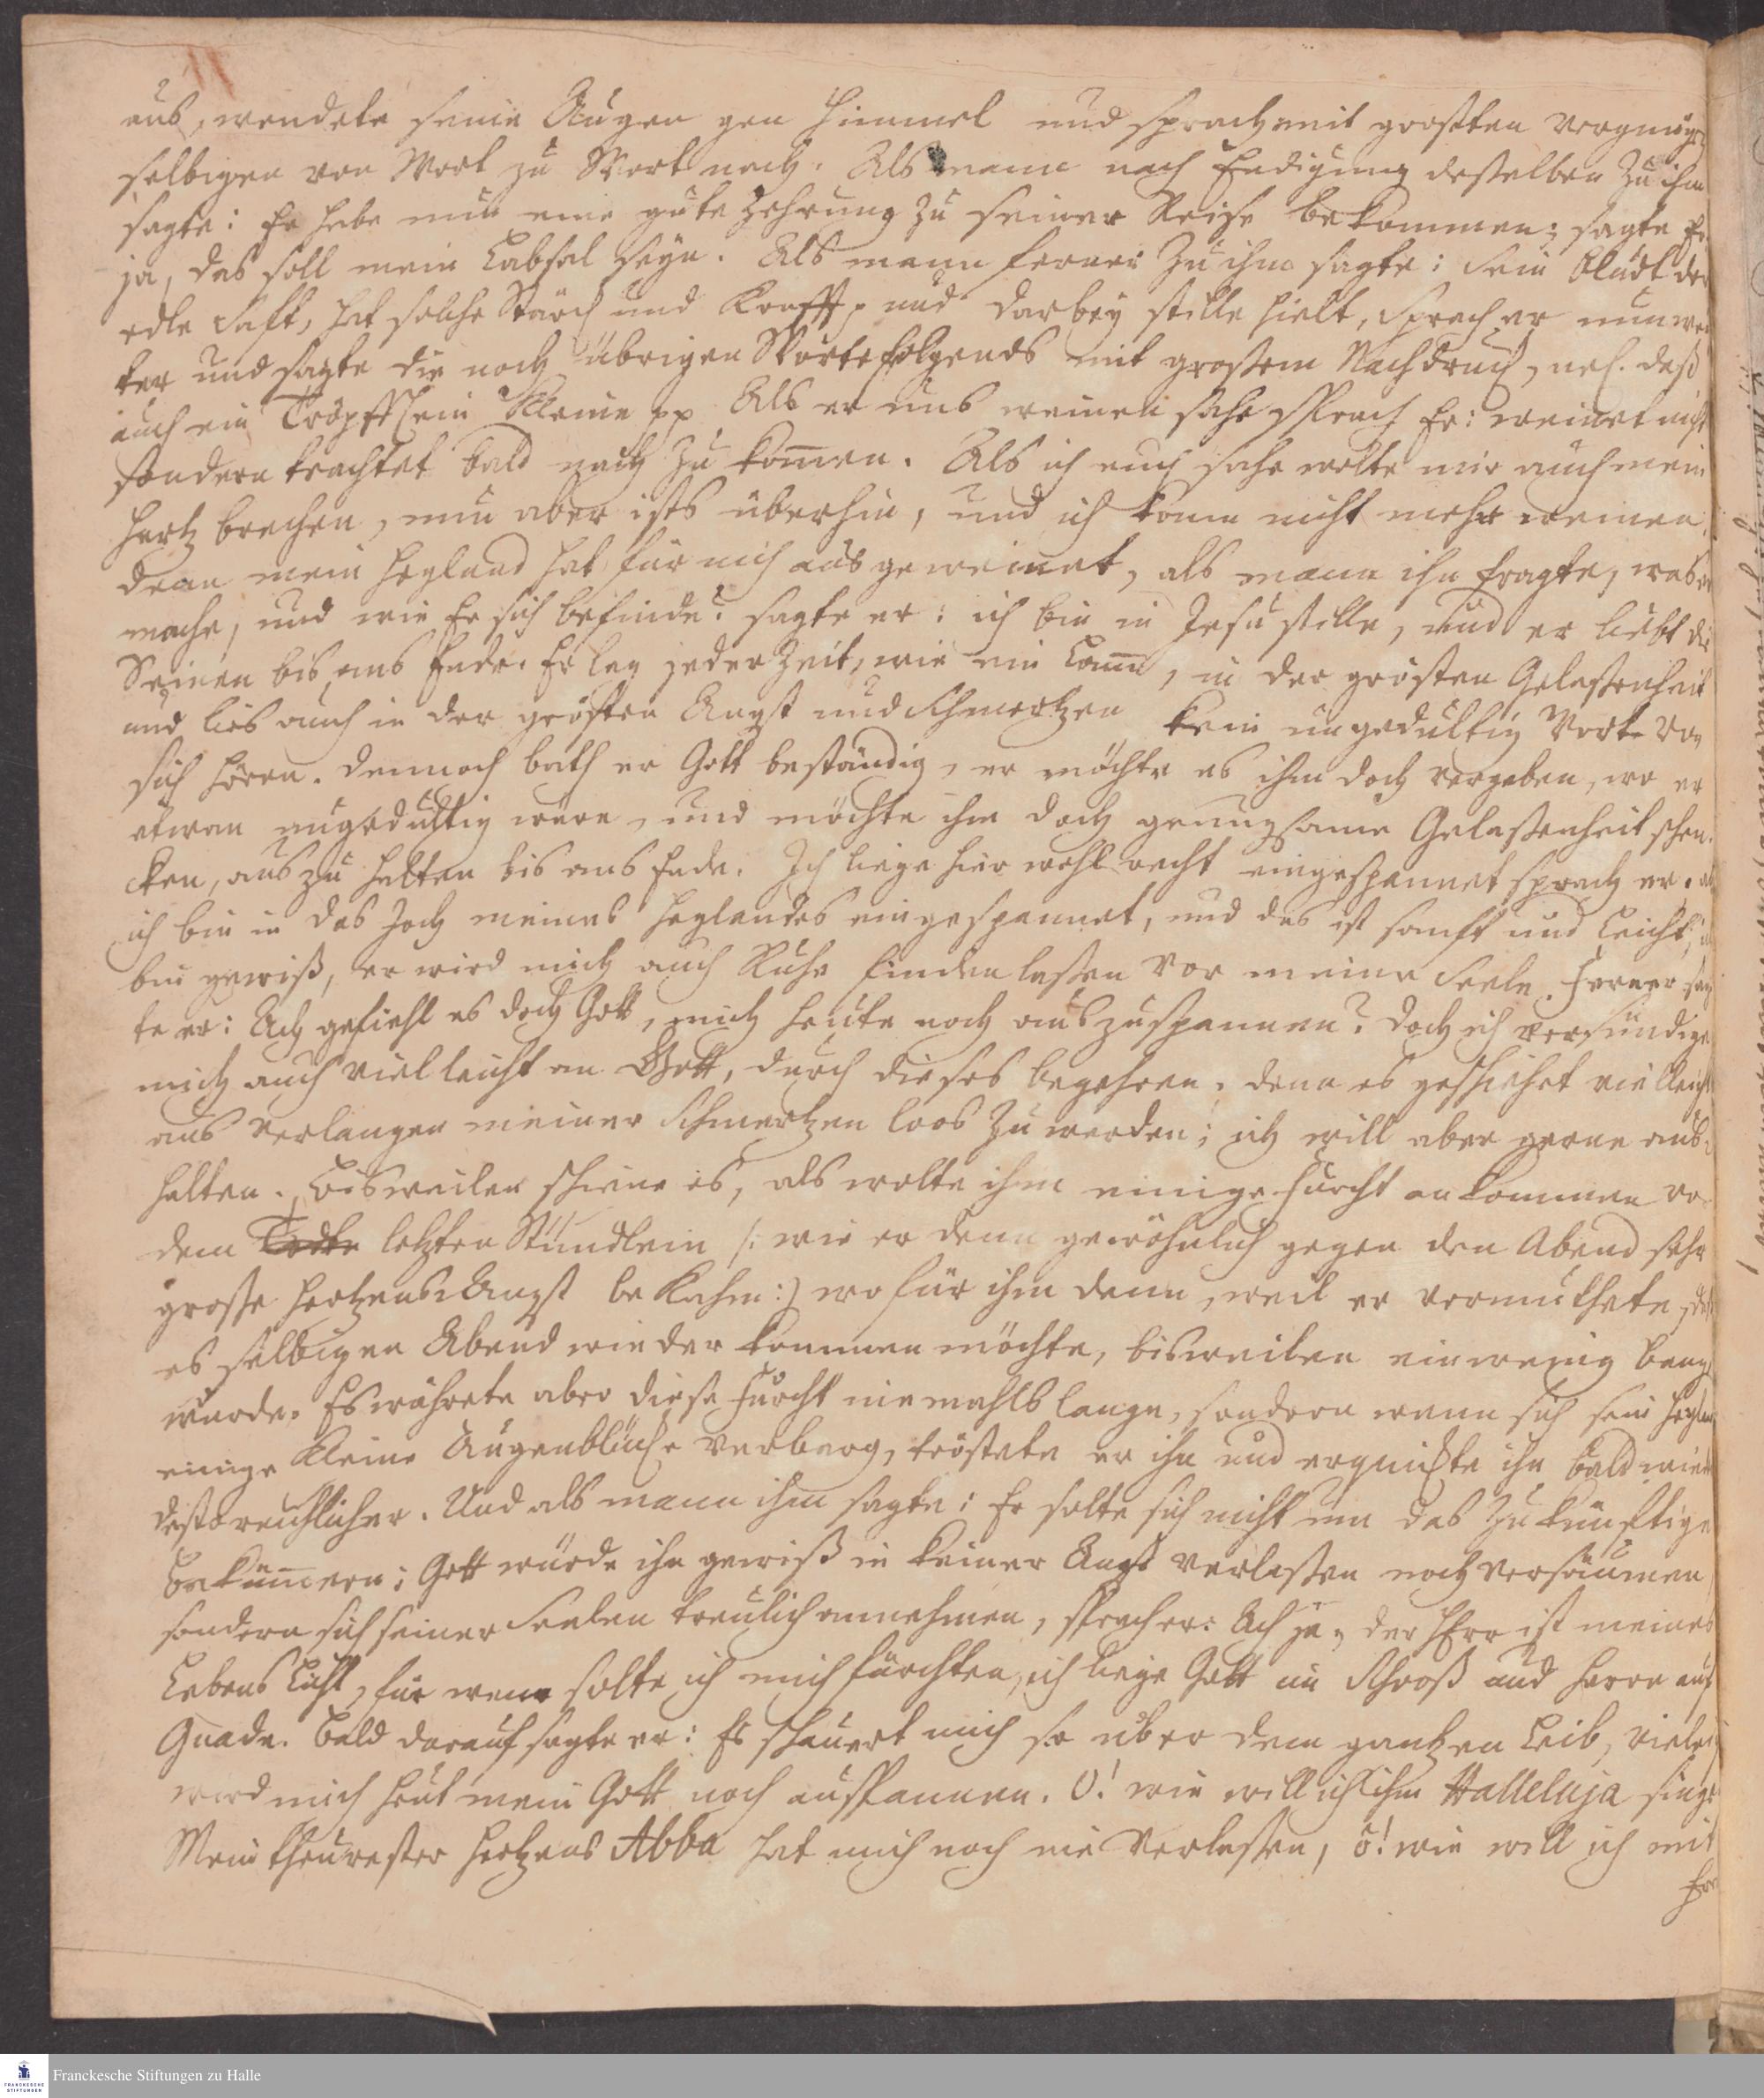 aus, wendete seine Augen gen Himmel und sprach mit grosten Vergnügen
selbigen von Wort zu Wort nach. Als mann nach Endigung desselben zu ihm
sagte: Er habe nun eine gute Zehrung zu seiner Reise bekommen; sagte Er
ja, das soll mein Labsal seyn. Als mann ferner zu ihm sagte: Sein Blut der
edle Saft, hat solche Stärck und Krafft, und darbey stille hielt, sprach er nun wei
ter und sagte die noch übrigen Worte folgends mit großem Nachdruck, nel. daß
auch ein Tröpfflein Kleine pp Als er uns weinen sahe sprach Er: weinet nicht
sondern trachtet bald nach zu kom̅en. Als ich euch sahe wolte mir auch mein
Hertz brechen, nun aber ists überhin, und ich kann nicht mehr weinen,
denn mein Heyland hat für mich ausgeweinet, als mann ihn fragte, was er
mache, und wie Er sich befinde? sagte er: ich bin in Jesu stille, und er liebt die
Seinen bis ans Ende. Er lag jeder Zeit, wie ein Lam̅, in der grösten Gelaßenheit
und lies auch in der grösten Angst und Schmertzen kein ungedultig Wort von
sich hören. Dennoch bath er Gott beständig, er möchte es ihm doch vergeben, wo er
etwan ungedultig wäre, und möchte ihm doch genugsame Gelaßenheit schen-
cken, auszu halten bis ans Ende. Ich liege hier wohl recht eingespannet sprach er.
ich bin in das Joch meines Heylandes eingespannet, und das ist sanft und leicht,
bin gewiß, er wird mich auch Ruhe finden laßen vor meine Seele. Ferner sag
te er: Ach gefiehl es doch Gott, mich heute noch auszuspannen? doch ich versündige
mich auch vielleicht an Gott, durch dieses begehren. denn es geschiehet vielleicht
aus verlangen meiner Schmertzen loos zu werden; ich will aber gerne aus-
halten. Bisweilen schiene es, als wolte ihm einige Furcht ankommen vo
dem Todte letzten Stündlein /: wie er denn gewöhnlich gegen den Abend sehr
große Hertzens Angst bekahm:) wofür ihm denn, weil er vermuthete, daß
es selbigen Abend wieder kommen möchte, bisweilen ein wenig bang
wurde. Es währete aber diese Furcht niemahls lange, sondern wenn sich sein Heyland
einige kleine Augenblicke verbarg, tröstete er ihn und erquickte ihn bald wieder
desto reichlicher. Und als mann ihm sagte: Er solte sich nicht um das Zukünftige
bekümmern; Gott würde ihn gewiß in keiner Angst verlaßen noch versäumen
sondern sich seiner Seelen treulich annehmen, sprach er: Ach ja, der HErr ist meines
Lebens Licht, für wem solte ich mich fürchten, ich liege Gott im Schooß und harre auf
Gnade. Bald darauf sagte er: Es schauert mich so über dem gantzen Leib,
wird mich heut mein Gott noch ausspannen. O! wie will ich ihm Halleluja singen
Mein theurester Hertzens Abba hat mich noch nie verlaßen, ô! wie will ich mit
Franckesche Stiftungen zu Halle
FRANCKESCHE
STIFTUNGEN